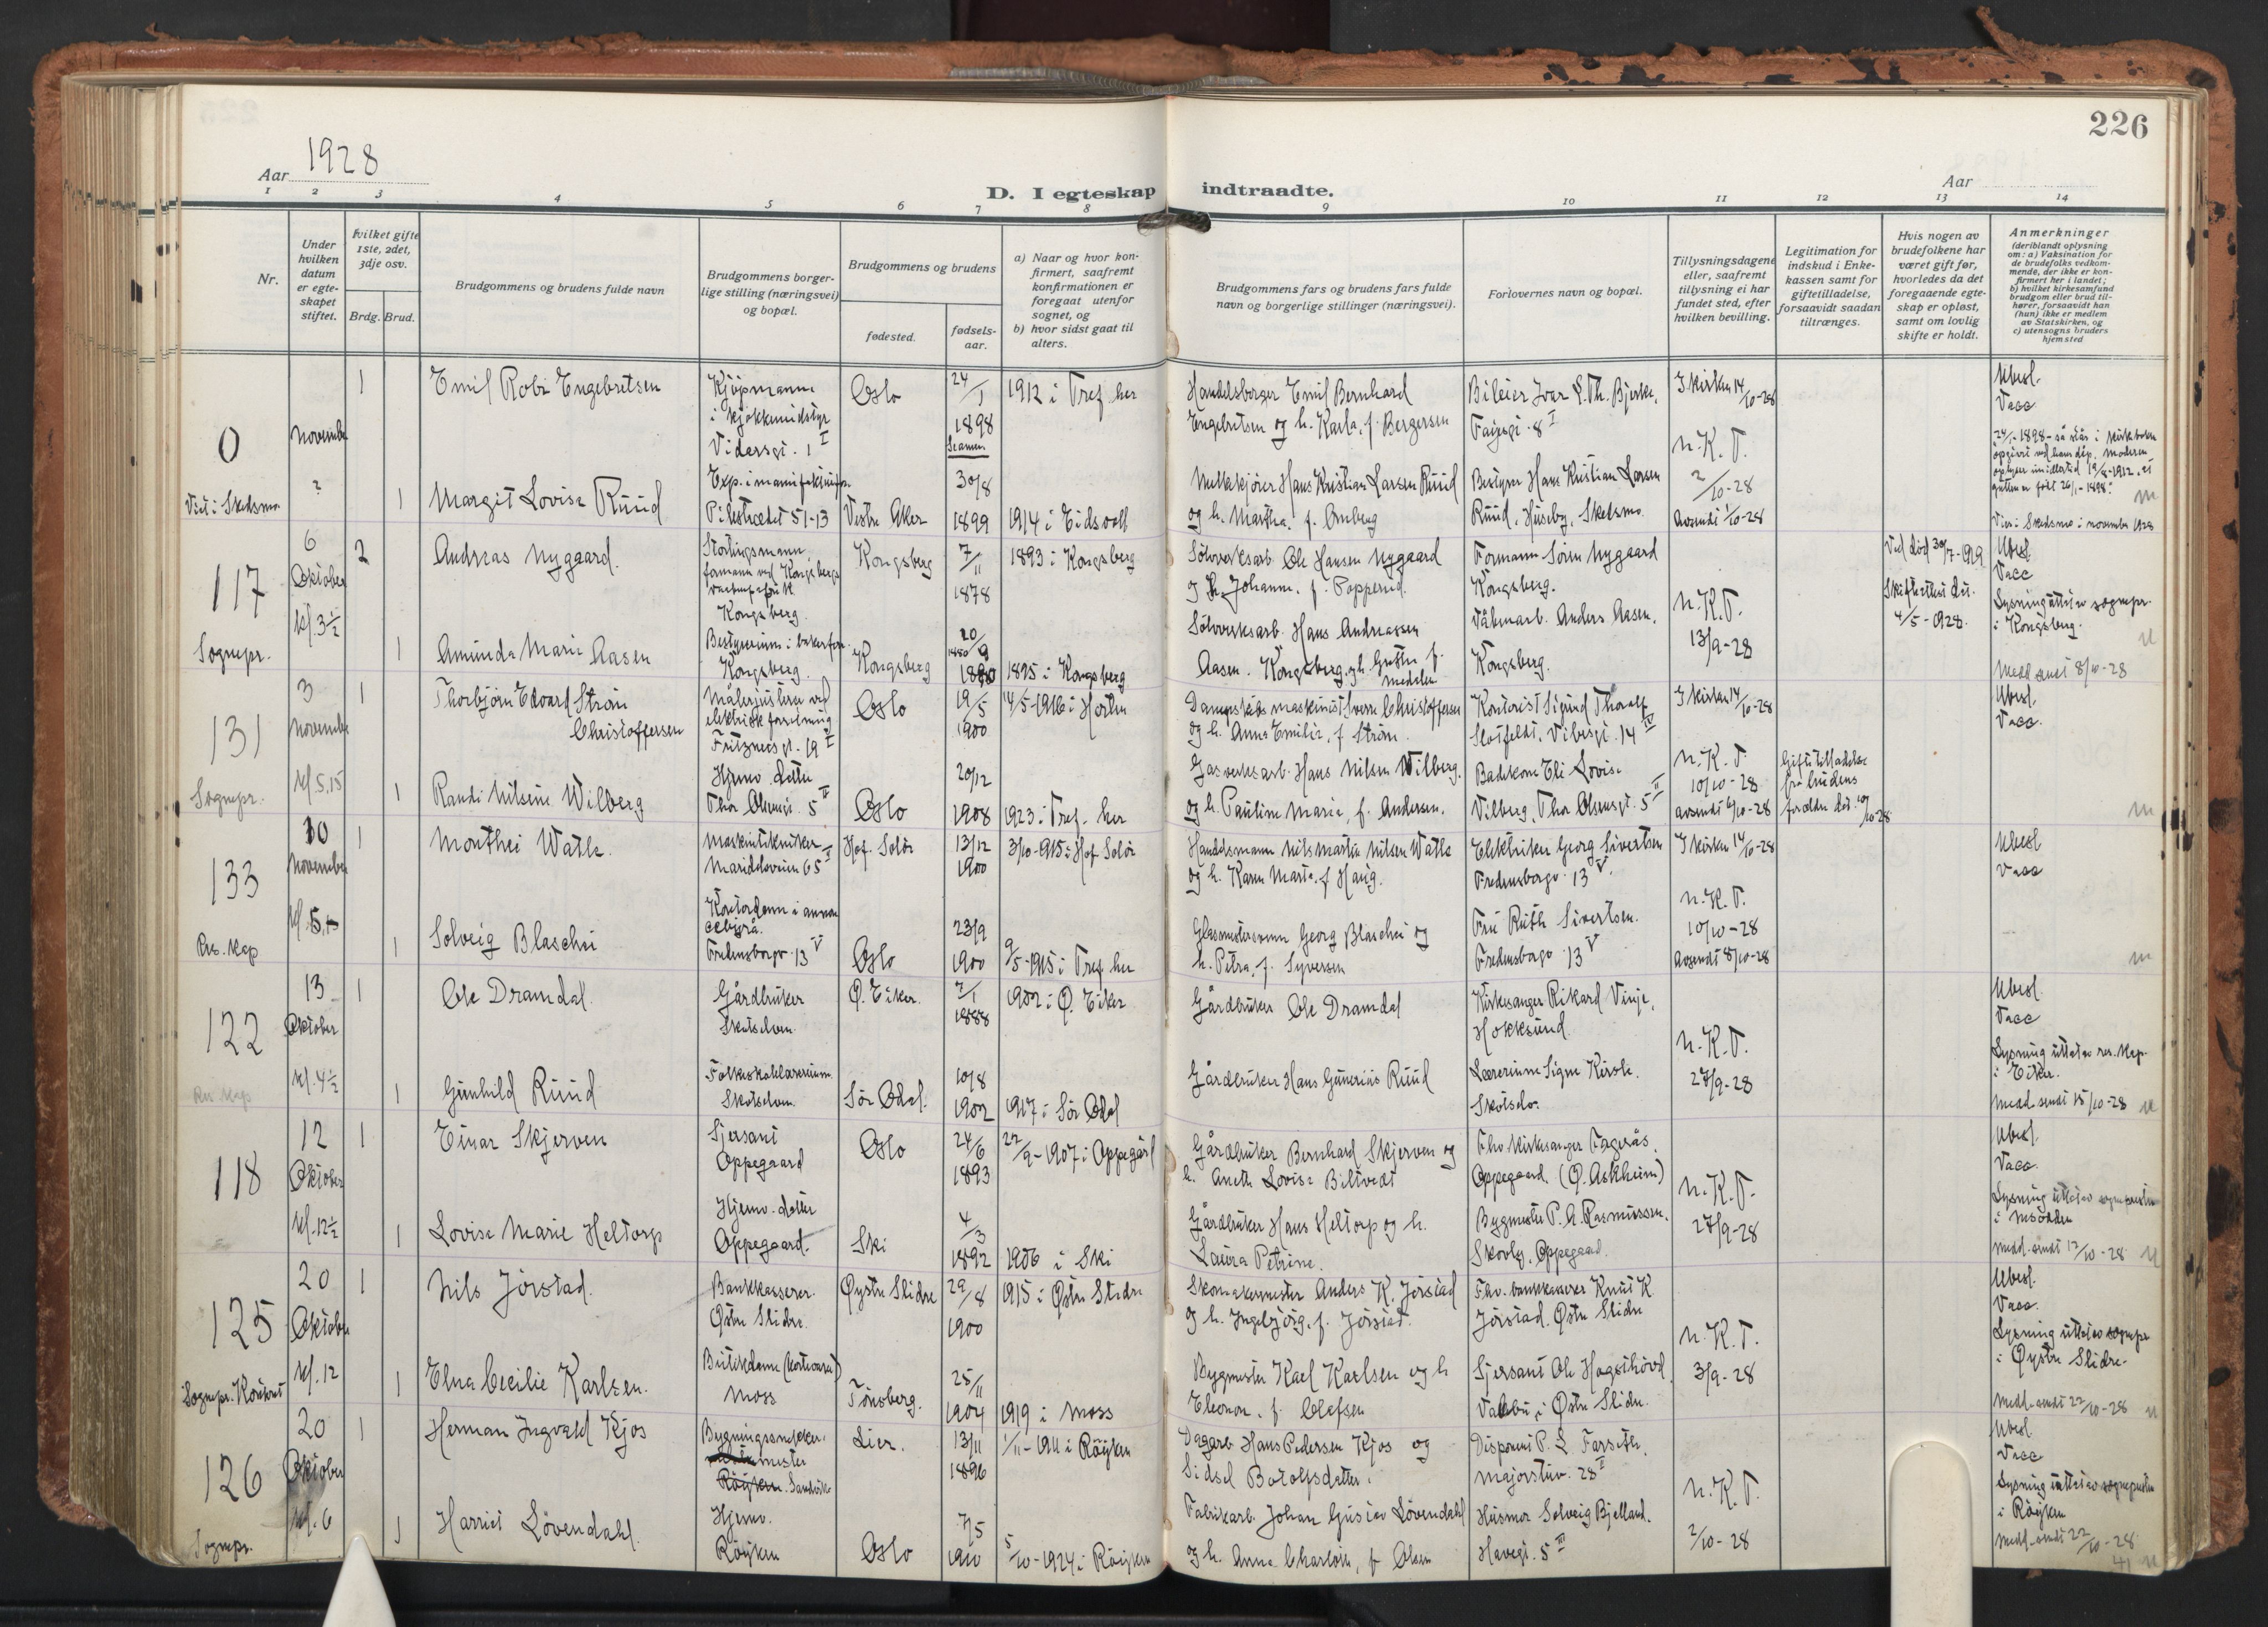 226
Aar 1928
D. I egteskap indtraadte.
Aar
1 2 3 4 5 6 7 8 9 10 11 12 13 14
Nr.
Under hvilken datum er egteskapet stiftet.
hvilket gifte 1ste, 2det, 3dje osv.
Brdg. Brud.
Brudgommens og brudens fulde navn
Brudgommens borgerlige stilling (næringsvei) og bopæl.
Brudgommens og brudens
fødested.
fødselsaar.
a) Naar og hvor konfirmert, saafremt konfirmationen er foregaat utenfor sognet, og
b) hvor sidst gaat til alters.
Brudgommens fars og brudens fars fulde navn og borgerlige stillinger (næringsvei).
Forlovernes navn og bopæl.
Tillysningsdagene eller, saafremt tillysning ei har fundet sted, efter hvilken bevilling.
Legitimation for indskud i Enkekassen samt for giftetilladelse, forsaavidt saadan tiltrænges.
Hvis nogen av brudefolkene har været gift før, hvorledes da det foregaaende egteskap er opløst, samt om lovlig skifte er holdt.
Anmerkninger
(deriblandt oplysning om: a) Vaksination for de brudefolks vedkommende, der ikke er konfirmert her i landet; b) hvilket kirkesamfund brudgom eller brud tilhører, forsaavidt han (hun) ikke er medlem av Statskirken, og c) utensogns bruders hjemsted
0
November
?
1 Emil Robi Engebretsen
Kjøpmann
i kjøkkenudstyr
Vidarsgt. 1 I
Oslo
24/1
1898
1912 i Tref. her
Handelsborger Emil Bernhard
Engebretsen og h. Karla, f. Bergersen
Bileier Ivar L. Th. Bjerke,
8 I
I kirken 14/10-28
n. K. T.
2/10-28
Ubesl.
Vacc
Viet i Skedsmo
1 Margit Lovise Ruud
Pilestrædet 51-13
Vestre Aker
30/8
1899
1914 i Eidsvoll
Melkekjører Hans Kristian Larsen Ruud
og h. Martha, f.
Bestyrer Hans Kristian Larsen
Ruud, Huseby, Skedsmo
Avsendt 1/10-28
Viet i Skedsmo i november 1928
117
6
Oktober
kl. 3½
2 Andreas Nygaard.
Stortingsmann,
formann ved Kongsbergs
Kongsberg.
Kongsberg
7/11
1878
1893 i Kongsberg
Sølvverksarb. Ole Hansen Nygaard
og h. Johanne, f. Popperud.
Formann Søren Nygaard
Kongsberg.
n. K. T.
13/9-28
Ved død 30/7-1919
4/5-1928.
Ubesl.
Vacc
Lysning uttat av sognepr.
i Kongsberg.
Sognepr.
1 Amunda Marie Aasen
Kongsberg.
Kongsberg
20/9
1880
1895 i Kongsberg
Sølvverksarb. Hans Andreassen
Aasen. Kongsberg, og h. Gusta f.
Våbenarb. Anders Aasen,
Kongsberg.
Medd. sendt 8/10-28
131
3
November
kl. 5,15
1 Thorbjørn Edvard Strøm
Christoffersen
Målerjusterer ved
elektrisk forretning
Fritznersgt. 19 I
Oslo
19/5
1900
14/5-1916 i Horten
Dampskibsmaskinist Sverre Christoffersen
og h. Anna Emilie, f. Strøm.
Kontorist Sigurd Thoralf
Slotfeldt, Vibesgt. 14 IV
I kirken 14/10-28
n. K. T.
10/10-28
Giftetilladelse
fra brudens
forældre
Ubesl.
Vacc.
Sognepr.
1 Randi Nilsine Wilberg
Hjemv. datter
Thor Olsensgt. 5 II
Oslo
20/12
1908
1923 i Tref. her
Gasverksarb. Hans Nilsen Wilberg.
og h. Pauline Marie, f. Andersen.
Badekone Eli Lovise
Vilberg, Thor Olsensgt. 5 II
133
10
November
1 Monthei Watle.
Maskintekniker
Maridalsveien 65 I
Hof. Solør
13/12
1900
3/10-1915 i Hof. Solør
Handelsmann Nils Martin Nilsen Watle
og h. Karen Marie, f. Haug.
Elektriker Georg Sivertsen
Fredensborgv. 13 V.
I kirken 14/10-28
n. K. T.
10/10-28
Avsendt 8/10-28
Ubesl
Vacc
Res. kap
1 Solveig Blaschei
Kontordame i annoncebyrå.
Fredensborgv. 13 V
Oslo
23/9
1900
9/5-1915 i Tref. her
Glassmestersvenn Georg Blaschei og
h. Petra, f. Syversen
Fru Ruth Sivertsen.
Fredensborgv 13 V
122
13
Oktober
kl. 4½
1 Ole Dramdal.
Gårdbruker
Skotselven
Ø. Eiker.
2/1
1888
1902 i Ø. Eiker
Gårdbruker Ole Dramdal
Kirkesanger Rikard Vinje,
Hokksund.
n. K. T.
27/9-28
Ubesl.
Vacc
Lysning uttat av res. kap.
i Eiker.
Medd. sendt 15/10-28
Res. kap
1 Gunhild Ruud
Folkeskolelærerinne
Skotselven.
Sør Odal.
10/8
1902
1917 i Sør Odal
Gårdbruker Hans Gunerius Ruud
Lærerinne Signe Kirste.
118
12
Oktober
kl. 12½
1 Einar Skjerven
Sjersant
Oppegaard
Oslo
24/6
1893
22/9-1907 i Oppegård
Gårdbruker Bernhard Skjerven og
h. Anette Lovise Biltvedt
Fhv. kirkesanger Fagerås.
Oppegaard. (Ø. Askheim)
n. K. T.
27/9-28
Ubesl.
Vacc.
Medd. sendt 12/10-28
1 Lovise Marie Heltorp
Hjemv. datter
Oppegaard.
Ski
4/3
1892
1906 i Ski
Gårdbruker Hans Heltorp og h.
Laura Petrine.
Bygmester P. A. Rasmussen.
Oppegaard.
125
20
Oktober
kl. 12
1 Nils Jørstad.
Bankkasserer.
Østre Slidre.
Øystre Slidre
29/8
1900
1915 i Østre Slidre
Skomakermester Anders K. Jørstad
og h. Ingebjørg, f. Jørstad.
Fhv. bankkasserer Knut K.
Jørstad. Østre Slidre
n. K. T.
3/9-28
Ubesl.
Vacc.
Lysning uttat av sognepr
i Øystre Slidre.
Medd. sendt 22/10-28
1 Elna Cecilie Karlsen.
Moss
Tønsberg.
25/11
1904
1919 i Moss
Bygmester Karl Karlsen og h
Eleonore, f. Olofsen
Sjersant Ole Hagsthovd,
Volbu, i Østre Slidre.
126
20
Oktober
kl. 6
1 Herman Ingvald Kjos
Bygningssnekker.
Røyken.
Lier.
13/11
1896
1/11-1911 i Røyken
Dagarb. Hans Pedersen Kjos og
Sidsel Botolfsdatter.
Disponent P. L. Farseth,
Majorstuv. 28 I
n. K. T.
2/10-28
Ubesl.
Vacc
i Røyken
Medd. sendt 22/10-28
Sognepr.
1 Harriet Løvendahl.
Hjemv.
Røyken
Oslo
7/5
1910
5/10-1924 i Røyken
Fabrikarb. Johan Gustav Løvendahl
og h. Anna Charlotte, f. Olsen
Husmor Solveig Bjelland.
Havegt. 5 III